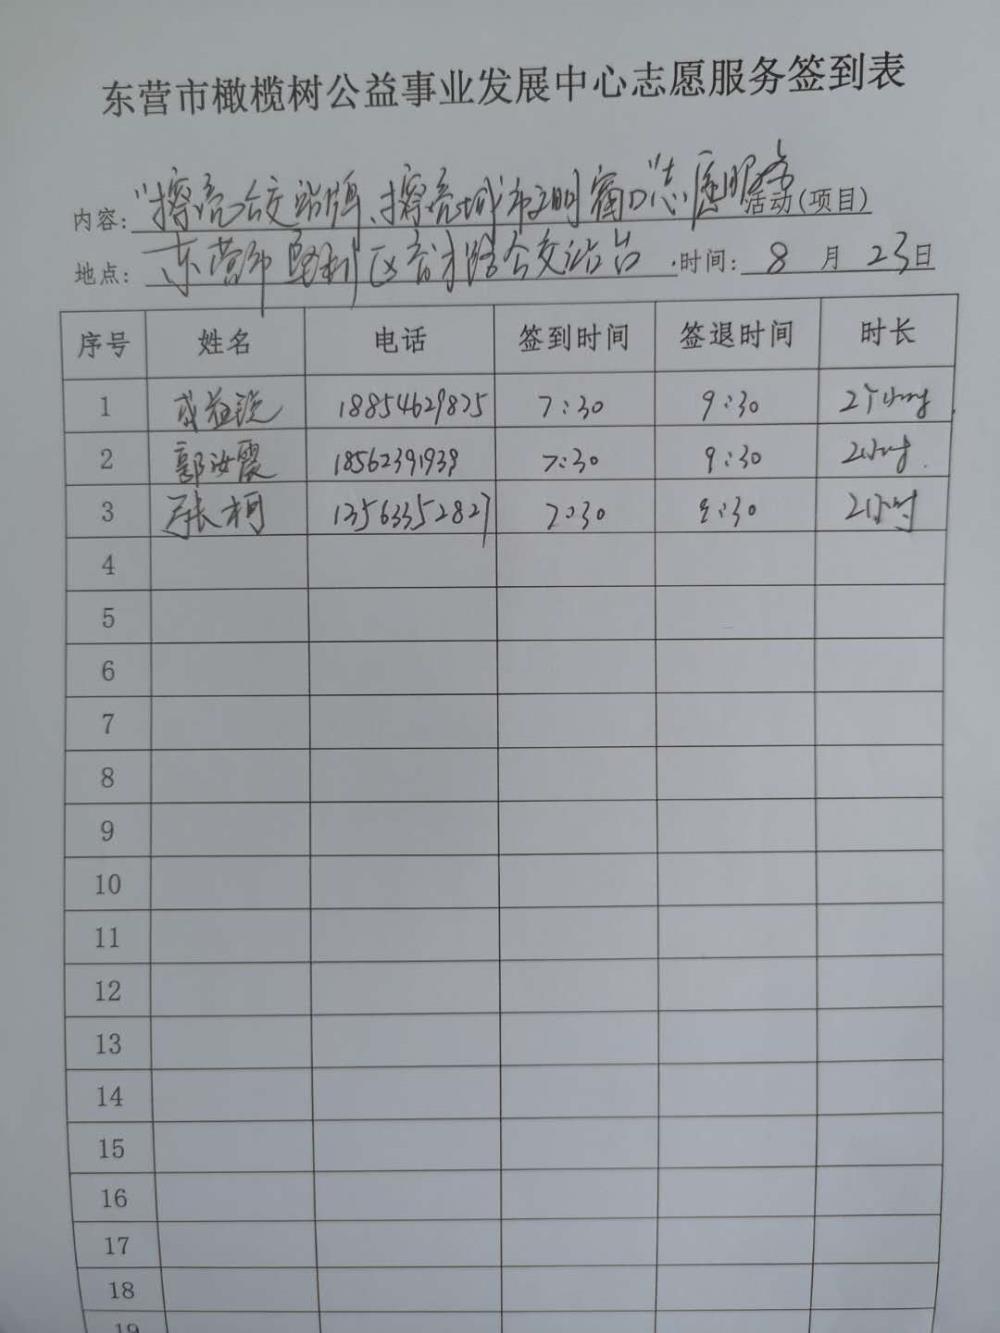 东营市橄榄树公益事业发展中心志愿服务签到表
内容:"擦亮公交站牌、擦亮城市文明窗口"志愿服务活动(项目)
地点:东营市垦利区育才路公交站台.时间:8月23日
序号 姓名 电话 签到时间 签退时间 时长
1 益 18854629825 7:30 9:30 2个小时
2 郭汝霞 18562391939 7:30 9:30 2小时.
3 张柯 13563352827 7:30 9:30 2小时
4
5
6
7
8
9
10
11
12
13
14
15
16
17
18
19